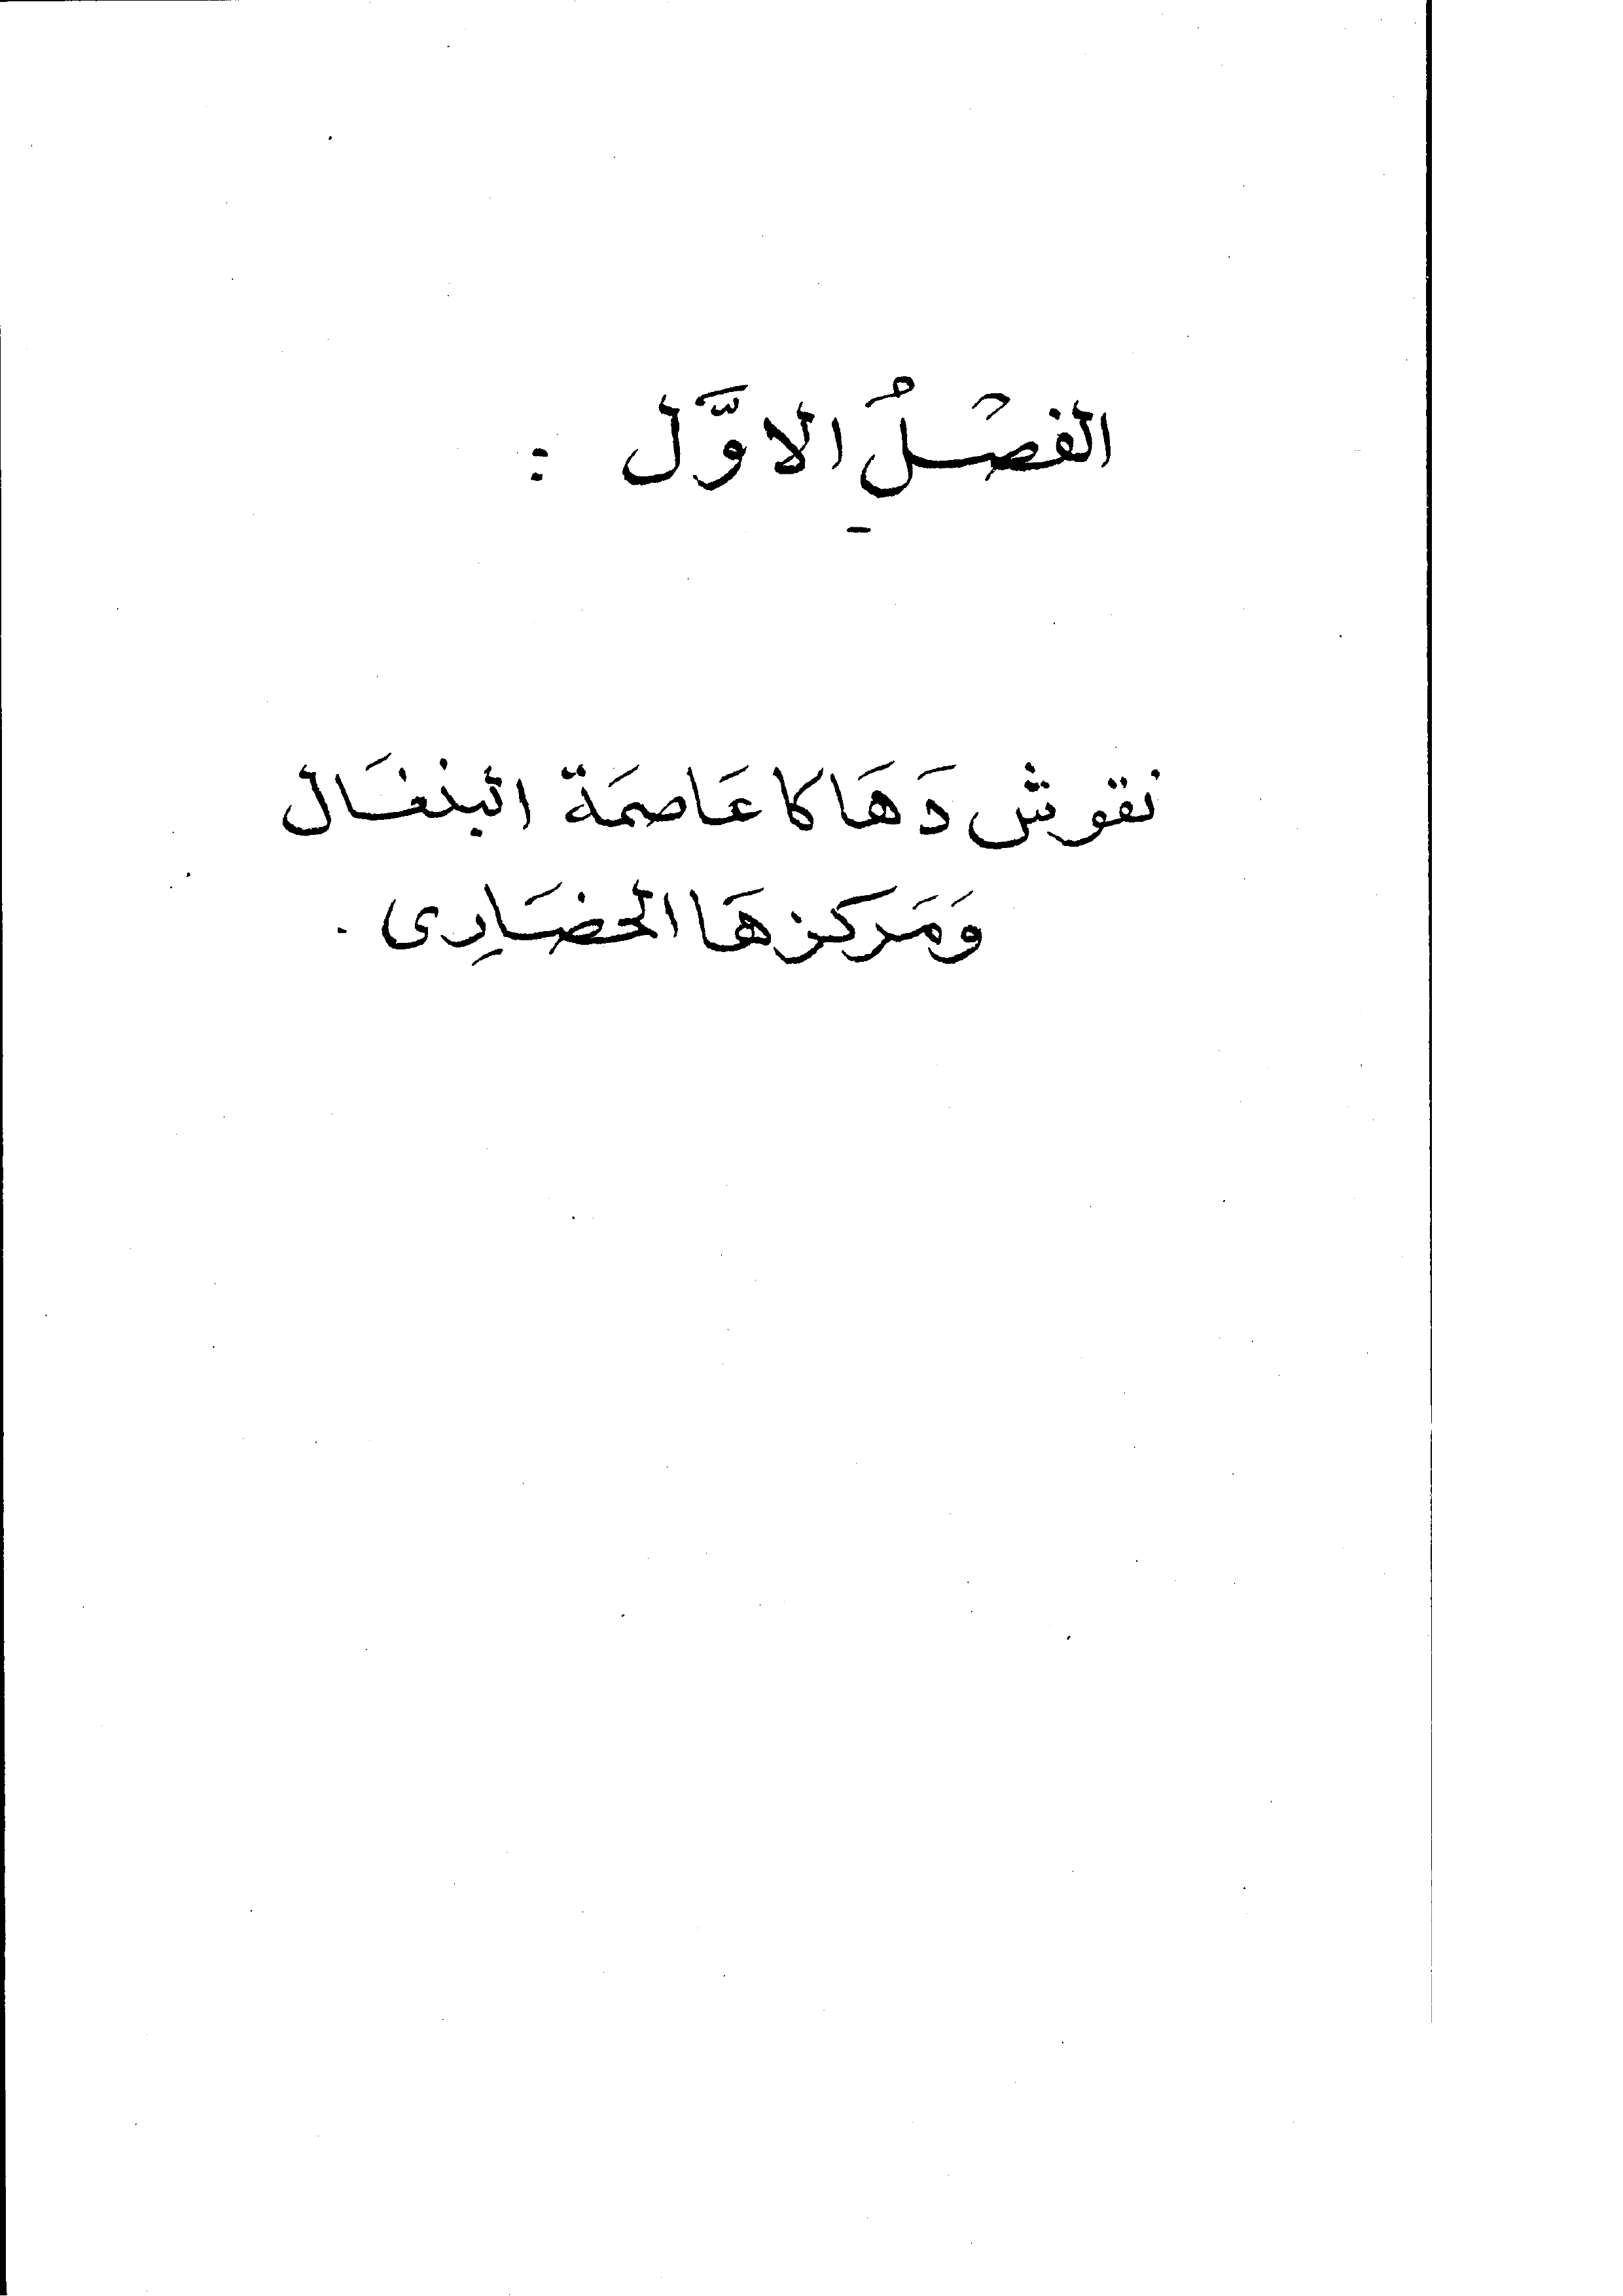 الفصْلُ الاوَّل :
نقوش دَهَاكا عَاصمَة البنغَال
وَمَركزهَا الحضَارِى .